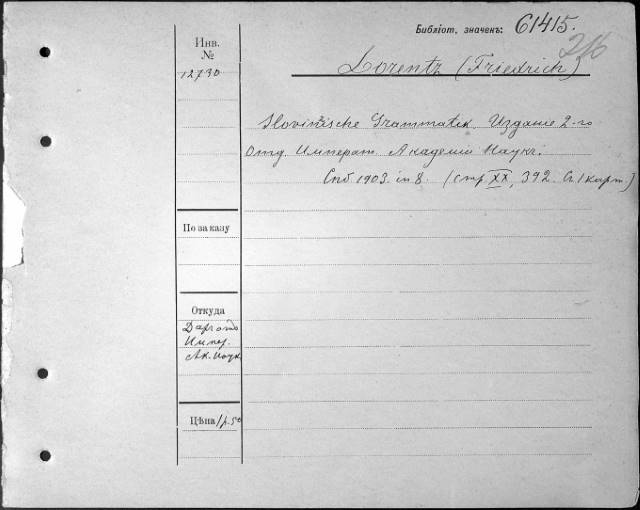 Библіот. значекъ: 61415.
216
Инв.
№
12730
Lorentz (Friedrich)
Slovinzische Grammatik. Изданіе 2-го
Отд. Императ. Академіи Наукъ.
Спб. 1903. in 8. (стр. XX, 392. Съ 1 карт.)
По заказу
Откуда
Даръ отъ
Импер.
Ак. Наук
Цѣна 1 р. 50